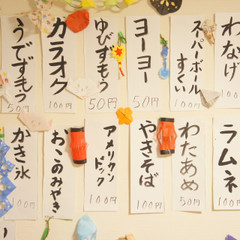 わなげ
100円
スーパーボール
すくい
100円
ヨーヨー
50円
ゆびずもう
50円
カラオケ
100円
うでずもう
50円
ラムネ
100円
わたあめ
50円
やきそば
100円
アメリカン
ドック
100円
おこのみやき
100円
かき氷
100円